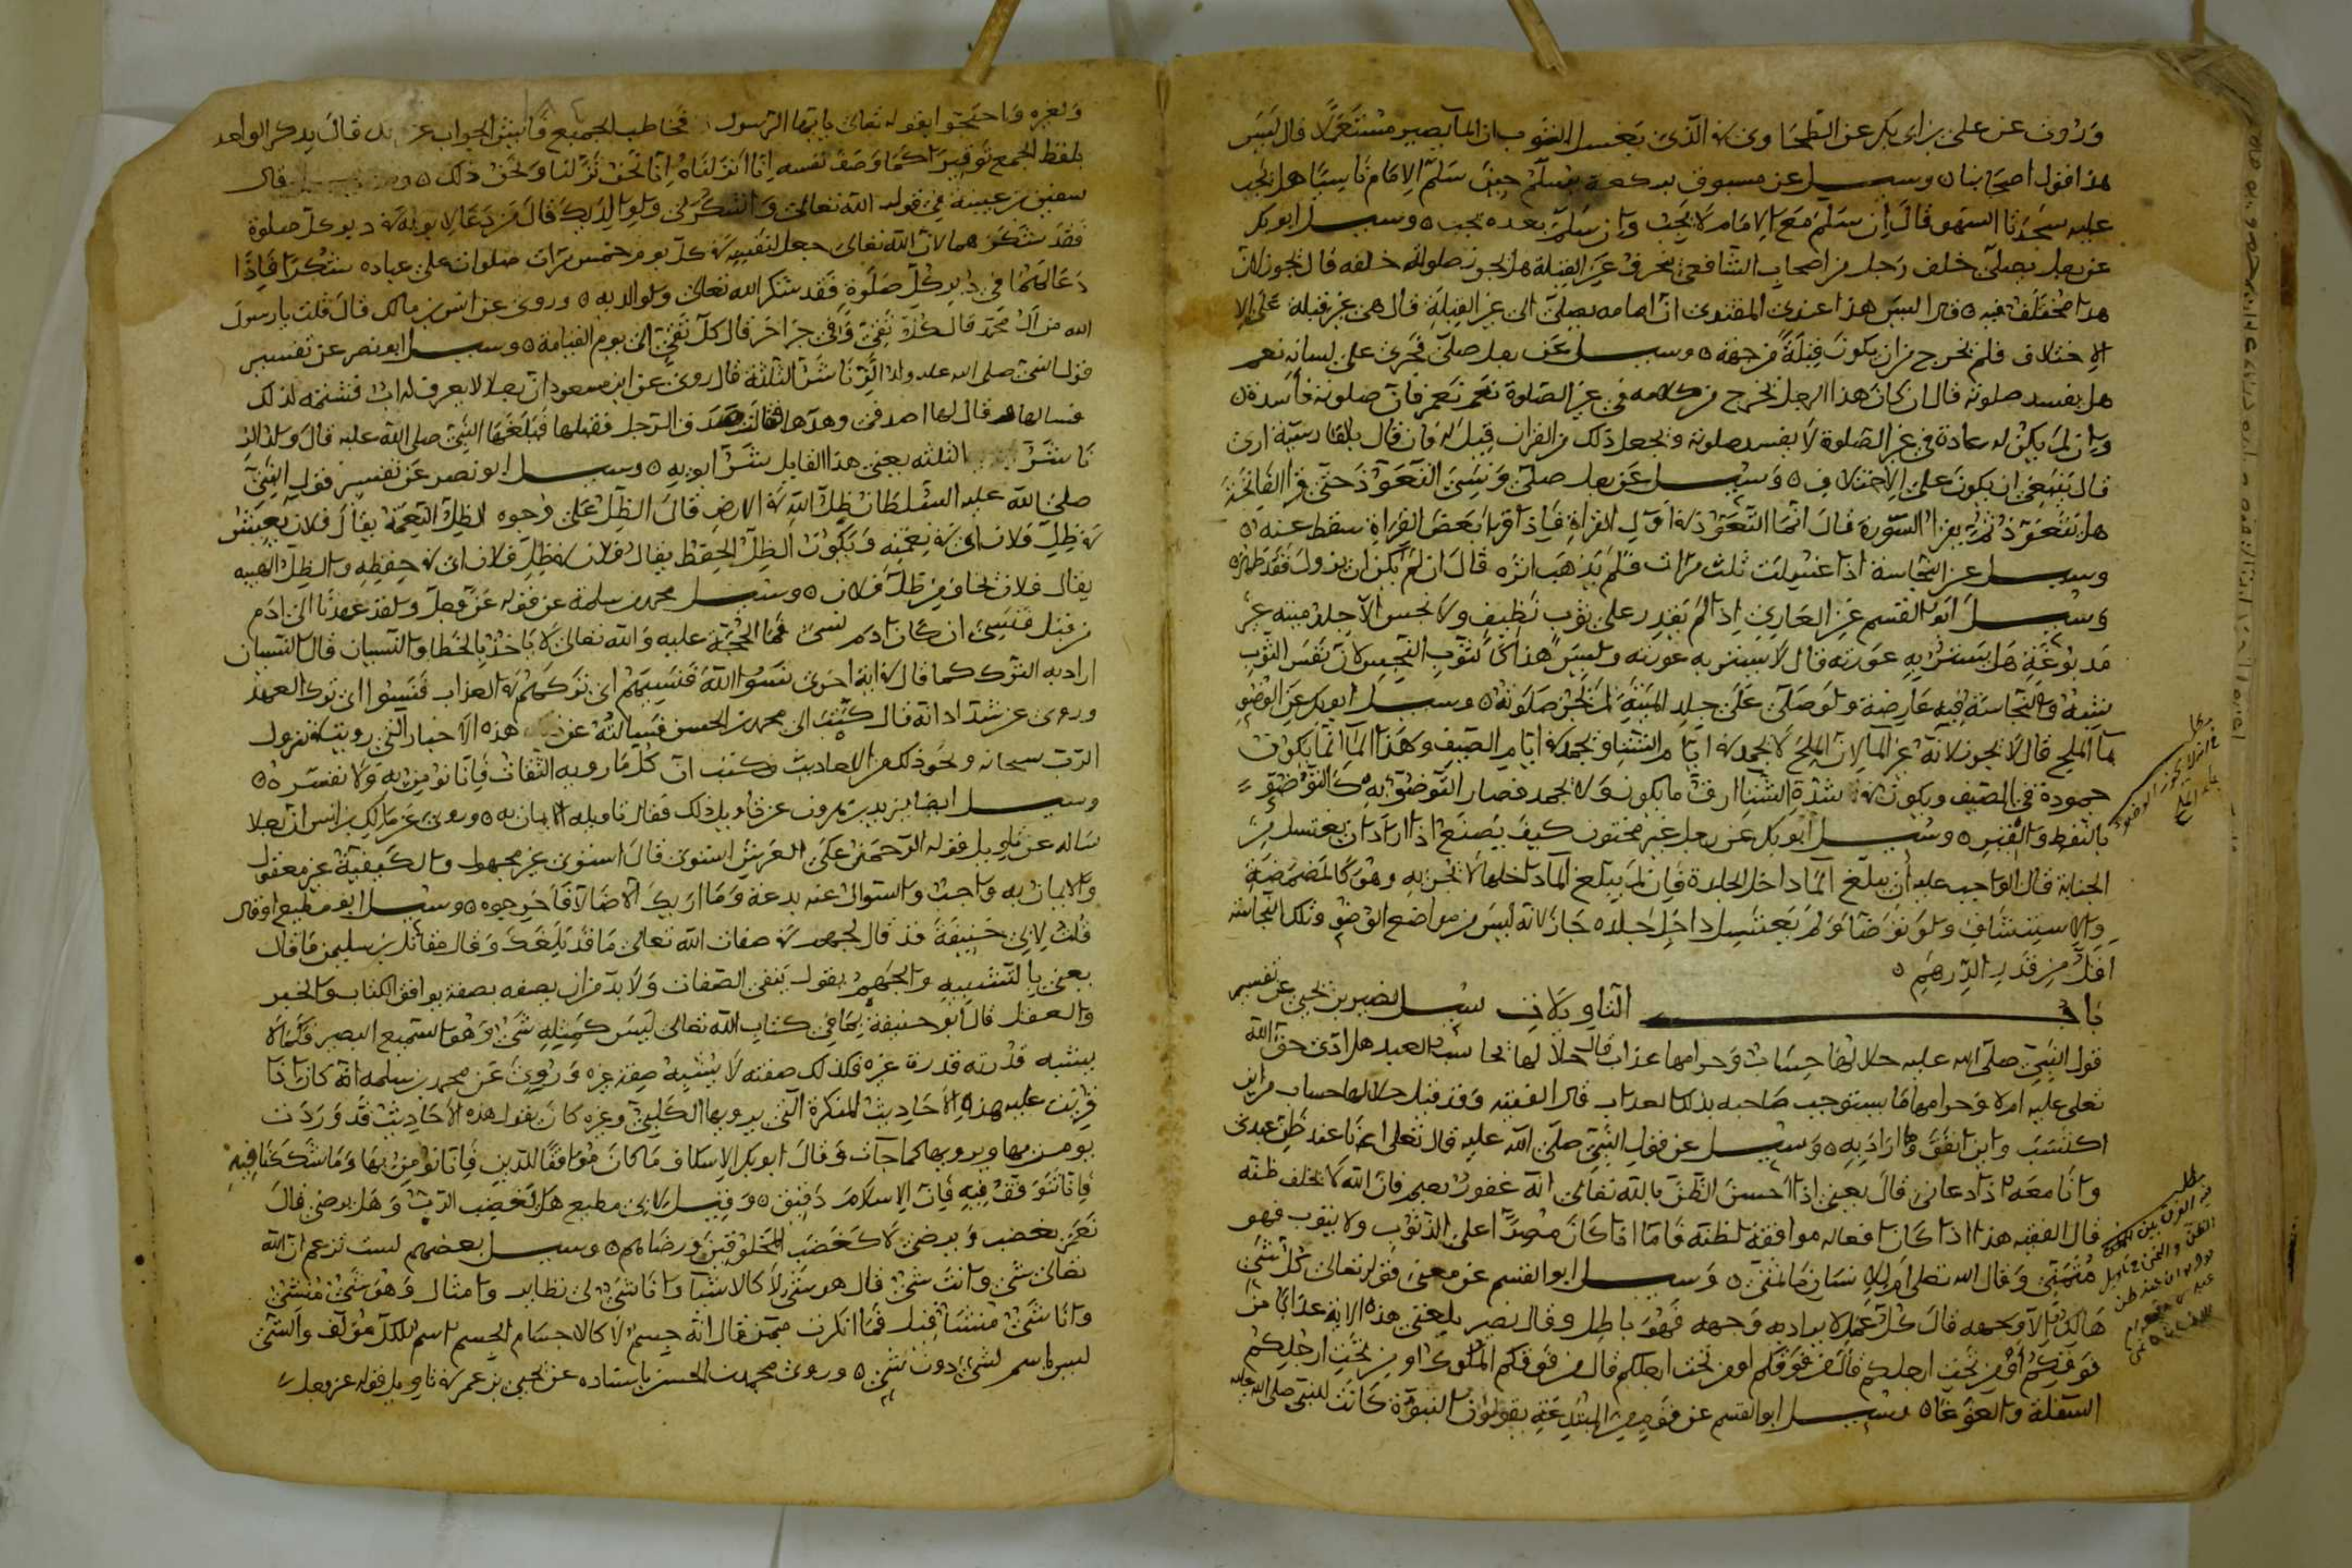 وروى عن على بن ابى بكر عن الطحاوى فى الذى يغسل الثوب ان الماء يصير مستعملا قال ليس
هذا قول اصحابنا ٥ وسيل عن مسبوق بركعة يسلم حين سلم الامام ناسيا هل يجب
عليه سجدتا السهو قال ان سلم مع الامام لا يجب وان سلم بعده يجب ٥ وسيل ابو بكر
عن رجل يصلى خلف رجل من اصحاب الشافعى ينحرف عن القبلة هل يجوز صلوته خلفه قال يجوز لان
هذا مختلف فيه ٥ قال ليس هذا عندى المقتدى ان امامه يصلى الى غير القبلة قال هى غير قبلة على الا
الاختلاف فلم يخرج من ان يكون قبلة من جهة ٥ وسيل عن رجل صلى فجرى على لسانه نعم
هل يفسد صلوته قال ان كان هذا الرجل يخرج من كلامه فى غير الصلوة نعم نعم فان صلوته فاسدة ٥
وان لم يكن له عادة فى غير الصلوة لا يفسد صلوته ويجعل ذلك من القران قيل له فان قال بالفارسية ارى
قال ينبغى ان يكون على الاختلاف ٥ وسيل عن رجل صلى ونسى التعوذ حتى قرا الفاتحة
هل يتعوذ ثم يقرا السورة قال انما التعوذ فى اول القراة فاذا قرا بعض القراة سقط عنه ٥
وسيل عن النجاسة اذا غسلت ثلث مرات فلم يذهب اثره قال ان لم يكن ان يزول فقد طهر ٥
وسيل ابو القسم عن العارى اذا لم يقدر على ثوب نظيف ولا نجس الا جلد ميتة غير
مدبوغة هل يستتر به عورته قال لا يستتر به عورته وليس هذا كالثوب النجس لان نفس الثوب
ستره والنجاسة فيه عارضة ولو صلى على جلد الميتة لم يجز صلوته ٥ وسيل ابو بكر عن الوضو
بما الملح قال لا يجوز لانه غير الما لان الملح لا يجمد فى ايام الشتا ويجمد فى ايام الصيف وهذا الما انما يكون
جمودة فى الصيف ويكون فى شدة الشتا ارق ما يكون ولا يجمد فصار التوضى به كالتوضى
بالنفط والقير ٥ وسيل ابو بكر عن رجل غير مختون كيف يصنع اذا اراد ان يغتسل من
الجنابة قال الواجب عليه ان يبلغ الما داخل الجلدة فان لم يبلغ الما داخلها لا يجز به وهو كالمضمضة
والاستنشاق ولو توضا ولم يغتسل داخل جلده جاز لانه ليس من مواضع الوضو وتلك النجاسة
اقل من قدر الدرهم ٥
باب التاويلات سيل نصير بن يحيى عن تفسير
قول النبى صلى الله عليه حلالها حساب وحرامها عذاب قال حلالها يحاسب العبد هل ادى حق الله
تعلى عليه ام لا وحرامها ما يستوجب صاحبه بذلك العذاب قال الفقيه وقد قيل حلالها حساب من اين
اكتسب واين انفق وما اراد به ٥ وسيل عن قول النبى صلى الله عليه قال تعلى انا عند ظن عبدى
وانا معه اذا دعانى قال يعنى اذا احسن الظن بالله تعالى انه غفور رحيم فان الله لا يخلف ظنه
قال الفقيه هذا اذا كان افعاله موافقة لظنه فاما اذا كان مصرا على الذنوب ولا يتوب فهو
متمنى وقال الله تعلى ام للانسان ما تمنى ٥ وسيل ابو القسم عن معنى قوله تعالى كل شى
هالك الا وجهه قال كل عمل لا يراد به وجهه فهو باطل وقال نصير بلغنى هذه الاية عذابا من
فوقكم او من تحت ارجلكم قال من فوقكم او من تحت ارجلكم قال من فوقكم الملوك او من تحت ارجلكم
السفلة والغوغا ٥ وسيل ابو القسم عن قوم من المبتدعة يقولون النبوة كانت للنبى صلى الله عليه
مطلب
فى انه لا يجوز الوضو
بما الملح
مطلب
فيه الفرق بين
ولغيره واحتجوا بقوله تعالى يا ايها الرسول فخاطب الجميع قال يذكر الواحد
بلفظ الجمع توقيرا كما وصف نفسه انا انزلناه انا نحن نزلنا ونحن ذلك ٥ قال
سفين بن عيينة فى قول الله تعالى وان اشكر لى ولوالديك قال من دعا لابويه فى دبر كل صلوة
فقد شكرهما لان الله تعالى جعل لنفسه فى كل يوم خمس مرات صلوات على عباده شكرا فاذا
دعا لهما فى دبر كل صلوة فقد شكر الله تعالى ولوالديه ٥ وروى عن انس بن مالك قال قلت يا رسول
الله من ال محمد قال كل تقى وفى خبر اخر قال كل تقى الى يوم القيامة ٥ وسيل ابو نصر عن تفسير
قول النبى صلى الله عليه ولد الزنا شر الثلثة قال روى عن ابن مسعود ان رجلا لا يعرف له اب فشتمه لذلك
فسالها قال لها اصدقى الرجل فقتلها فبلغها النبى صلى الله عليه قال ولد الزنا
نا شر الثلثة يعنى هذا القايل شر ابويه ٥ وسيل ابو نصر عن تفسير قول النبى
صلى الله عليه السلطان ظل الله فى الارض قال الظل على وجوه الظل النعمة يقال فلان يعيش
فى ظل فلان اى فى نعمته ويكون الظل الحفظ يقال فلان فى ظل فلان اى فى حفظه والظل الهيبة
يقال فلان يخاف من ظل فلان ٥ وسيل محمد بن سلمة عن قوله عز وجل ولقد عهدنا الى ادم
من قبل فنسى ان كان ادم نسى فما الحجة عليه والله تعالى لا ياخذ بالخطا والنسيان قال النسيان
اراد به الترك كما قال فى اية اخرى نسوا الله فنسيهم اى تركهم فى العذاب فنسوا اى ترك العهد
وروى عن شداد انه قال كتبت الى محمد بن الحسن فسالته عن هذه الاخبار التى رويت فى نزول
الرب سبحانه ونحو ذلك من الاحاديث فكتب ان كل ما رويه الثقات فانا نومن به ولا نفسر ٥٥
وسيل ايضا يزيد بن هرون عن تاويل ذلك فقال تاويله الايمان به ٥ وروى عن مالك بن انس ان رجلا
ساله عن تاويل قوله الرحمن على العرش استوى قال استوى غير مجهول والكيفية غير معقول
والايمان به واجب والسوال عنه بدعة وما اريك الا ضالا فاخرجوه ٥ وسيل ابو مطيع او قال
قلت لابى حنيفة قد قال الجهم فى صفات الله تعالى ما قد بلغك وقال مقاتل بن سليمن ما قال
يعنى بالتشبيه والجهم يقول بنفى الصفات ولا بد من ان يصفه بصفة يوافق الكتاب والخبر
والعقل قال ابو حنيفة بما فى كتاب الله تعالى ليس كمثله شى وهو السميع البصير فكما لا
يشبه قدرته قدرة غيره فكذلك صفته لا يشبه صفة غيره وروى عن محمد بن سلمه انه كان اذا
قريت عليه هذه الاحاديث المنكرة التى يرويها الكلبى وغيره كان يقول هذه الاحاديث قد وردت
نومن بها ويرويها كما جات وقال ابو بكر الاسكاف ما كان موافقا للدين فانا نومن بها وما شككنا فيه
فانا نتوقف فيه فان الاسلام دقيق ٥ وقيل لابى مطيع هل يغضب الرب وهل يرضى قال
نعم يغضب ويرضى لا كغضب المخلوقين ورضاهم ٥ وسيل بعضهم لست تزعم ان الله
تعالى شى وانت شى قال هو شى لا كالاشيا وانا شى لى نظاير وامثال وهو شى منشى
وانا شى منشا قيل فما انكرت ممن قال انه جسم لا كالاجسام الجسم اسم لكل مولف والشى
ليس باسم لشى دون شى ٥ وروى محمد بن الحسن باسناده عن يحيى بن عمر فى تاويل قوله عز وجل